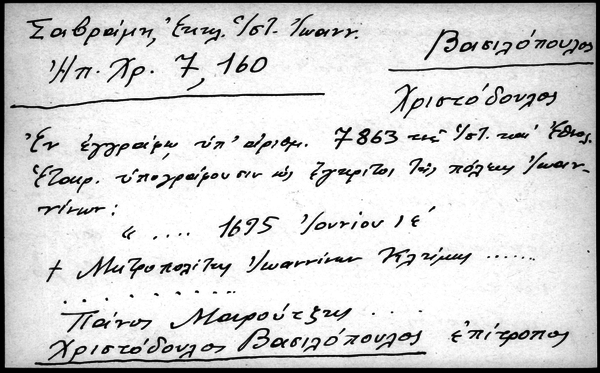 Σαβράμη, Ἐκκλ. Ἱστ. Ἰωανν.
Ἠπ. Χρ. 7, 160
Βασιλόπουλος
Χριστόδουλος
Ἐν ἐγγράφῳ ὑπ' ἀριθμ. 7863 τῆς Ἱστ. καὶ Ἐθνολ.
Ἑταιρ. ὑπογράφουσιν ὡς ἔγκριτοι τῆς πόλεως Ἰωαν-
νίνων:
" .... 1695 Ἰουνίου ιέ
† Μητροπολίτης Ἰωαννίνων Κλήμης ......
..........
Πάνος Μαρούτζης ....
Χριστόδουλος Βασιλόπουλος ἐπίτροπος